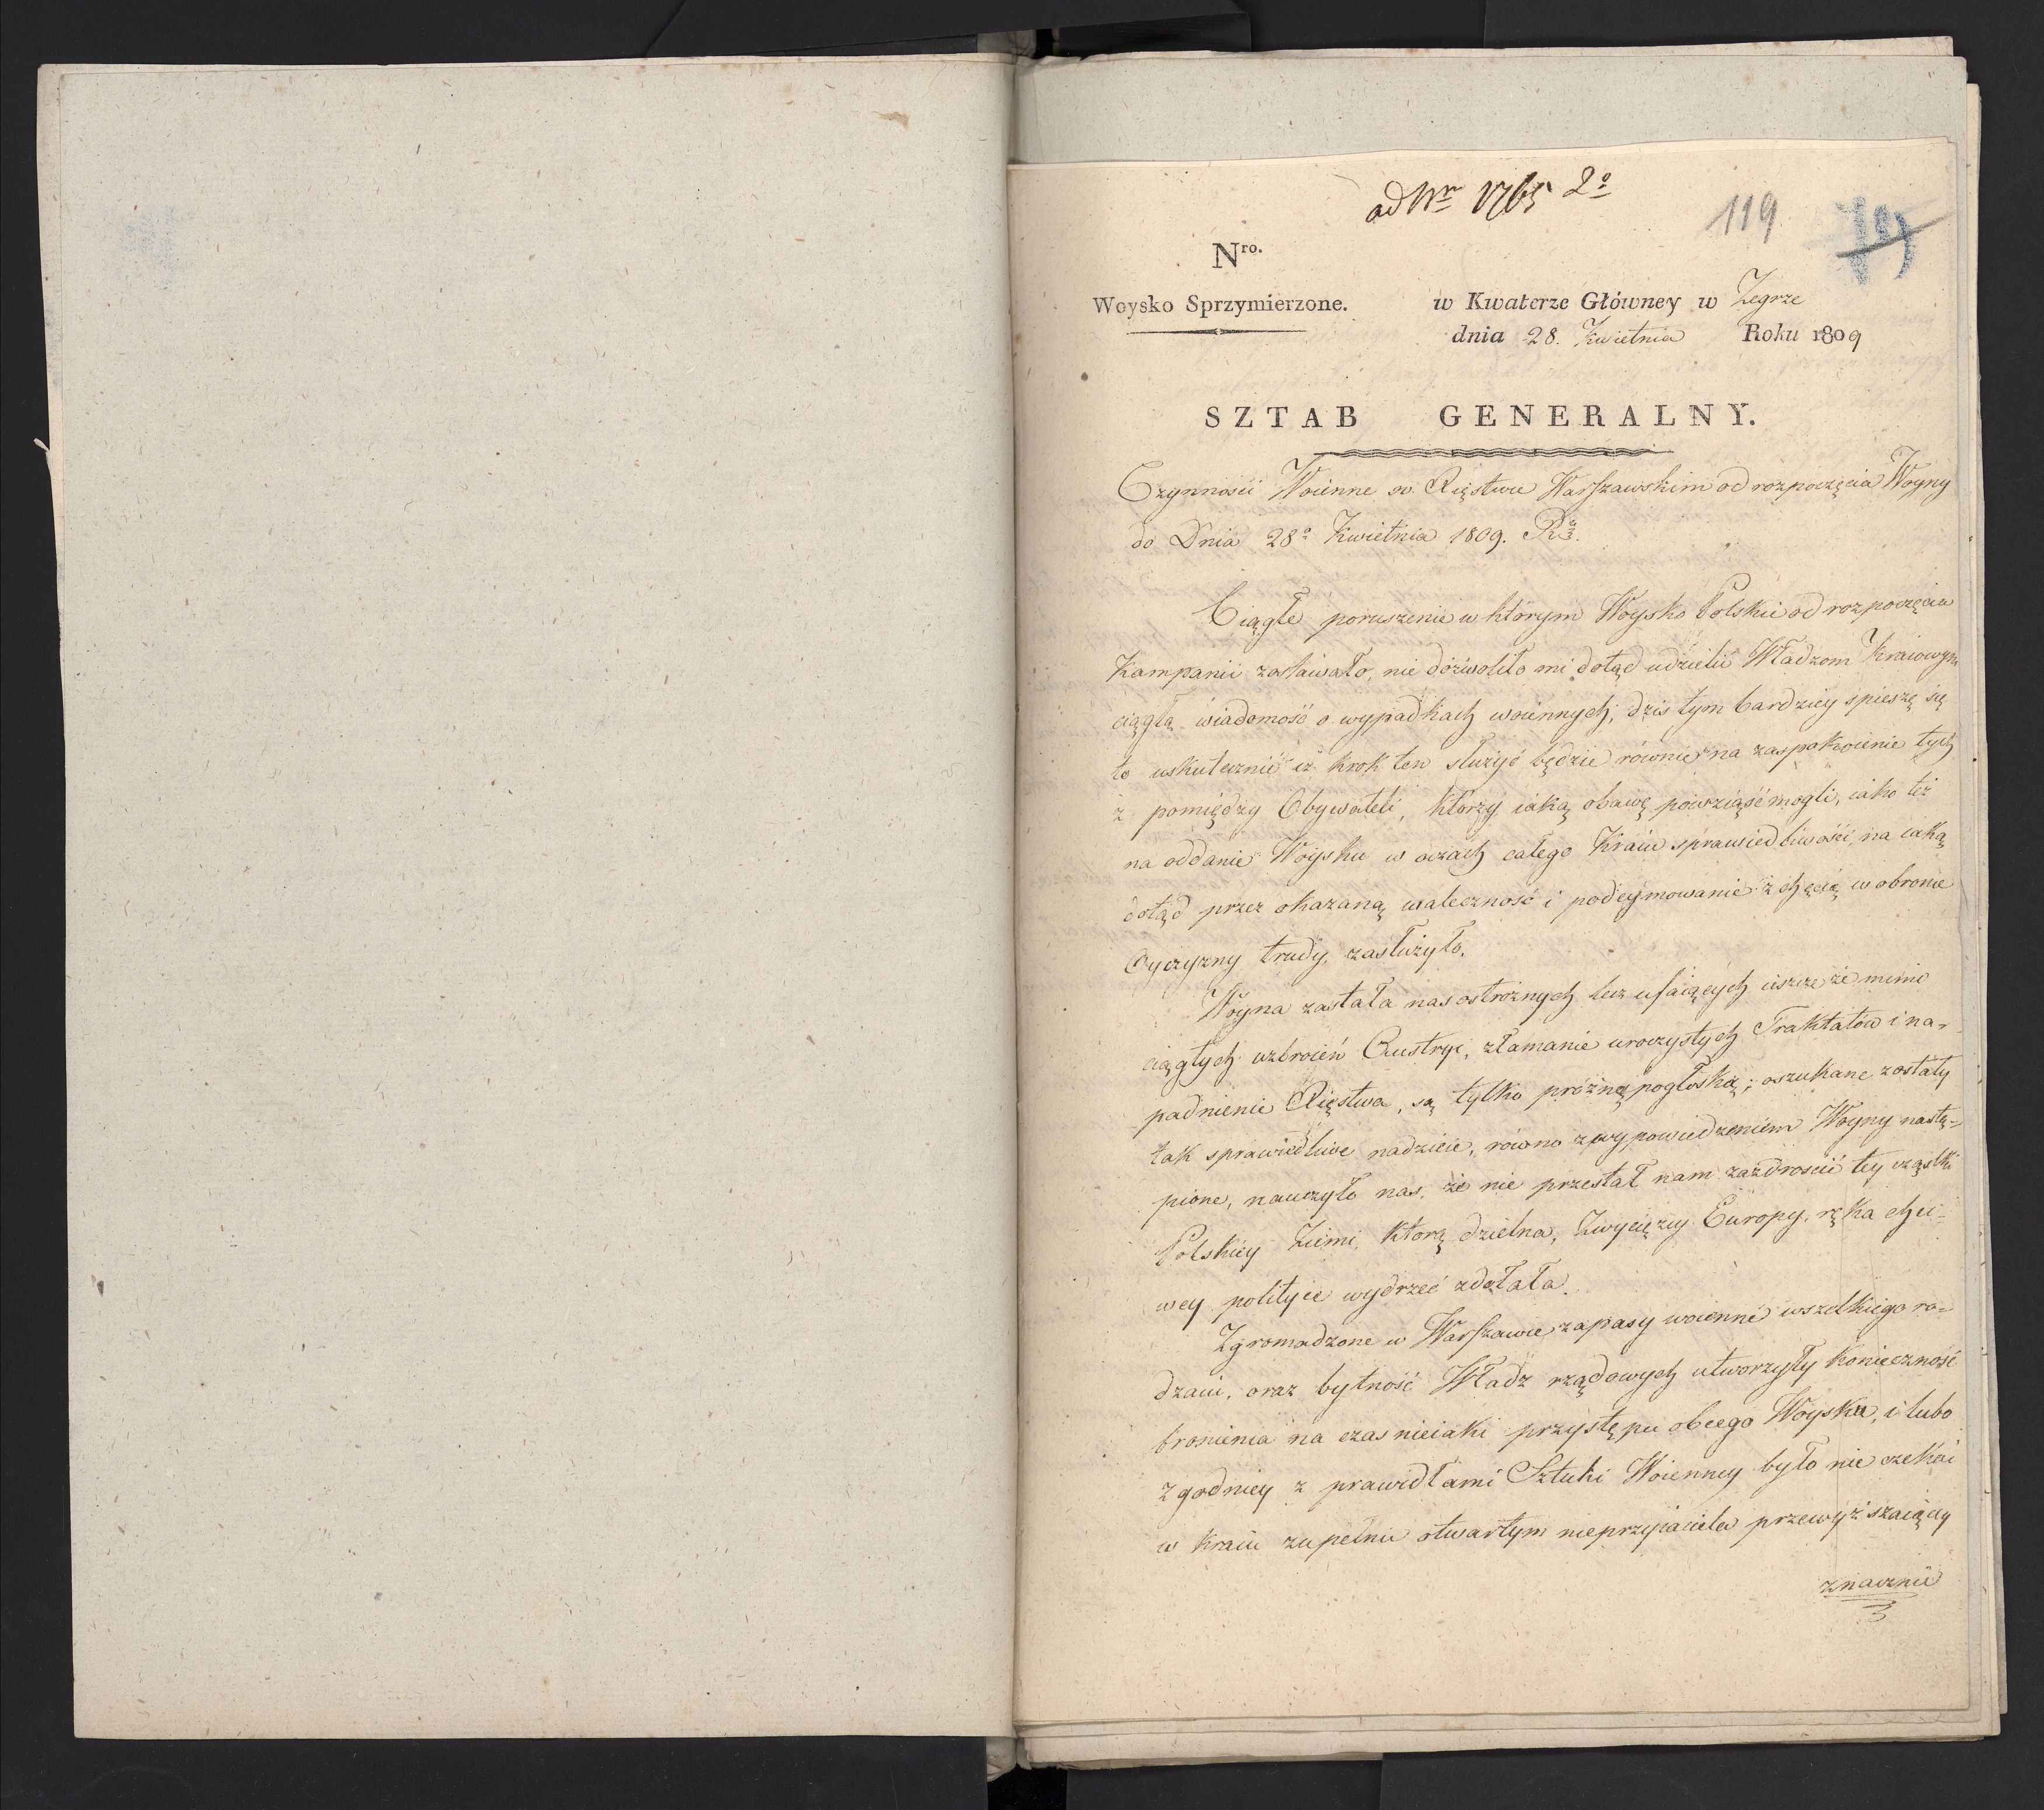 ad Nr 1765 2o
119
Nro.
Woysko Sprzymierzone.
w Kwaterze Główney w Zegrze
dnia 28. Kwietnia Roku 1809
SZTAB GENERALNY.
Czynności Woienne w Xięstwie Warszawskim od rozpoczęcia Woyny
do Dnia 28o Kwietnia 1809. Ru.
Ciągłe poruszenie w którym Woysko Polskie od rozpoczęcia
Kampanii zostawało, nie dozwoliło mi dotąd udzielić Władzom Kraiowym
ciągłą wiadomość o wypadkach woiennych; dziś tym bardziey spieszę się
to uskutecznić iż krok ten służyć będzie równie na zaspokoienie tych
z pomiędzy Obywateli, którzy iaką obawę powziąść mogli, iako też
na oddanie Woysku w oczach całego Kraiu sprawiedliwości, na iaką
dotąd przez okazaną waleczność i podeymowanie z chęcią w obronie
Oyczyzny trudy, zasłużyło.
Woyna zastała nas ostrożnych lecz ufaiących ieszcze że mimo
ciągłych uzbroień Austryi, złamanie uroczystych Traktatów i na-
padnienie Xięstwa, są tylko próżną pogłoską; oszukane zostały
tak sprawiedliwe nadzieie, równo z wypowiedzeniem Woyny nastę-
pione, nauczyło nas, że nie przestał nam zazdrościć tey cząstki
Polskiey Ziemi, którą dzielna, Zwycięzcy Europy, ręka chci-
wey polityce wydrzeć zdołała.
Zgromadzone w Warszawie zapasy woienne wszelkiego ro-
dzaiu, oraz bytność Władz rządowych utworzyły konieczność
bronienia na czas nieiaki przystępu obcego Woyska, i lubo
zgodniey z prawidłami Sztuki Woienney było nie czekać
w kraiu zupełnie otwartym nieprzyiaciela przewyższaiącey
znacznie